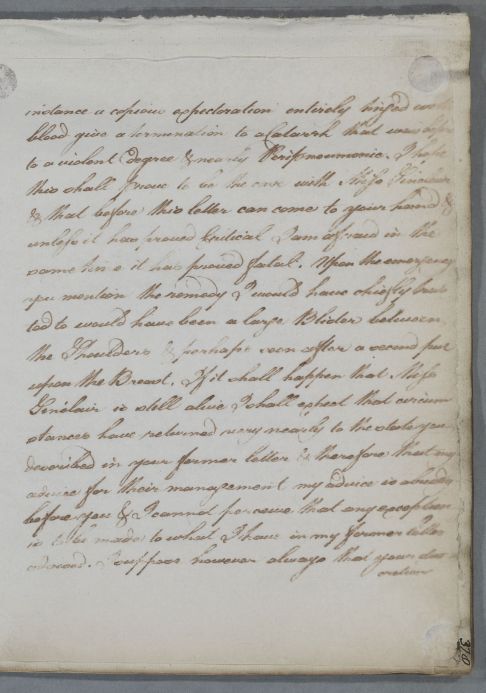 instance a copious expectoration entirely tinged with
blood give a termination to a Catarrh that was before
to a violent degree & nearly Peripneumonic. I hope
this shall prove to be the case with Miss Sinclair
& that before this letter can come to your hand &
unless it has proved Critical I am afraid in the
same time it has proved fatal. Upon the emergency
you mention the remedy I would have chiefly trus
ted to would have been a large Blister between
the Shoulders & perhaps soon after a second put
upon the Breast. If it shall happen that Miss
Sinclair is still alive I shall expect that circum
stances have returned very nearly to the state you
described in your former letter & therefore that my
advice for their management my advice is already
before you & I cannot perceive that any exception
is to be made to what I have in my former letter
advised. I suppose however always that your dis
cretion
370